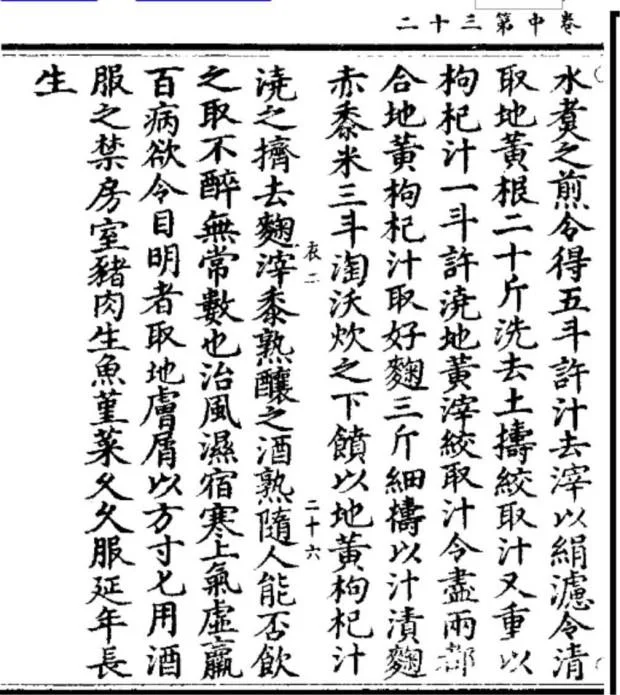 卷中第三十二
水煮之煎令得五斗許汁去滓以絹濾令清
取地黃根二十斤洗去土擣絞取汁又重以
枸杞汁一斗許澆地黃滓絞取汁令盡兩都
合地黃枸杞汁取好麴三斤細擣以汁漬麴
赤黍米三斗淘沃炊之下饙以地黃枸杞汁
衣二　二十六
澆之擠去麴滓黍熟釀之酒熟隨人能否飲
之取不醉無常數也治風濕宿寒上氣虛羸
百病欲令目明者取地膚屑以方寸匕用酒
服之禁房室豬肉生魚菫菜久久服延年長
生